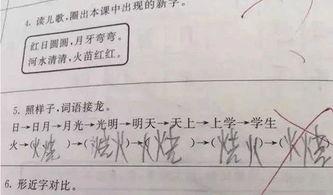 4. 读儿歌,圈出本课中出现的新字。
红日圆圆,月牙弯弯。
河水清清,火苗红红。
5. 照样子,词语接龙。
日→日月→月光→光明→明天→天上→上学→学生
火→(火烧)→(烧火)→(火烧)→(烧火)→(火烧)
6. 形近字对比。